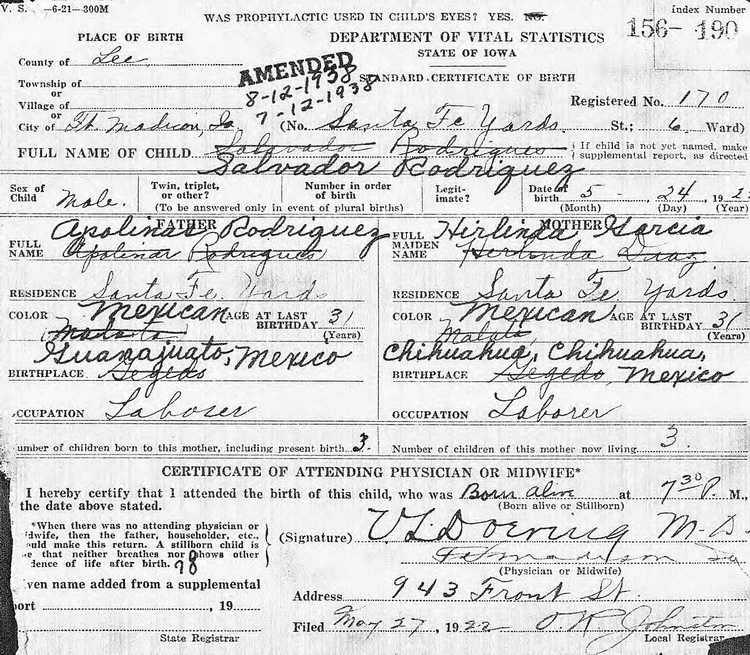 V. S. —6-21—300M
WAS PROPHYLACTIC USED IN CHILD'S EYES? YES. NO.
Index Number
156- 190
PLACE OF BIRTH
DEPARTMENT OF VITAL STATISTICS
STATE OF IOWA
County of Lee
AMENDED
8-12-1938
7-12-1938
STANDARD CERTIFICATE OF BIRTH
Township of
or
Village of
Registered No. 170
or
City of Ft. Madison, Ia (No. Santa Fe Yards St.; 6 Ward)
FULL NAME OF CHILD Salavador Rodrigues
Salvador Rodriguez
If child is not yet named, make
supplemental report, as directed
Sex of Child Male.
Twin, triplet, or other?
Number in order of birth
(To be answered only in event of plural births)
Legit-imate?
Date of birth 5 - 24 192
(Month) (Day) (Year)
FATHER
Apolinar Rodriguez
FULL NAME Apolinar Rodrigues
RESIDENCE Santa Fe Yards
COLOR Mexican AGE AT LAST BIRTHDAY 31
(Years)
Guanajuato, Mexico
BIRTHPLACE
OCCUPATION Laborer
MOTHER
Hirlinda Garcia
FULL MAIDEN NAME Herlinda
RESIDENCE Santa Fe Yards
COLOR Mexican AGE AT LAST BIRTHDAY 31
(Years)
Chihuahua, Chihuahua,
BIRTHPLACE Mexico
OCCUPATION Laborer
umber of children born to this mother, including present birth 3.
Number of children of this mother now living 3.
CERTIFICATE OF ATTENDING PHYSICIAN OR MIDWIFE*
I hereby certify that I attended the birth of this child, who was Born alive at 7 30 P. M.,
(Born alive or Stillborn)
the date above stated.
*When there was no attending physician or
idwife, then the father, householder, etc.,
ould make this return. A stillborn child is
e that neither breathes nor shows other
dence of life after birth. 98
(Signature) V L Doering M. D.
Ft madison
(Physician or Midwife)
iven name added from a supplemental
port , 19
Address 943 Front St.
State Registrar
Filed May 27, 1922 Johnston
Local Registrar